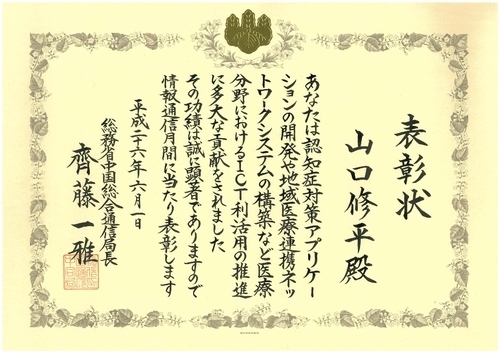 表彰状
山口修平殿
あなたは認知症対策アプリケー
ションの開発や地域医療連携ネッ
トワークシステムの構築など医療
分野におけるICT利活用の推進
に多大な貢献をされました
その功績は誠に顕著でありますので
情報通信月間に当たり表彰します
平成二十六年六月一日
総務省中国総合通信局長
齊藤一雅